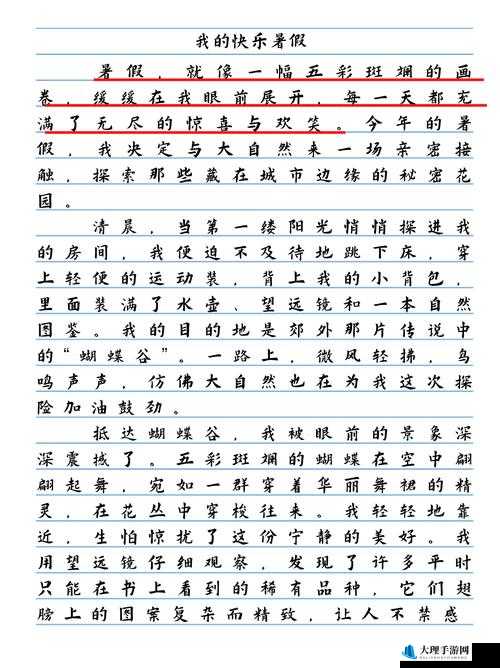 我的快乐暑假
暑假，就像一幅五彩斑斓的画
卷，缓缓在我眼前展开，每一天都充
满了无尽的惊喜与欢笑。今年的暑
假，我决定与大自然来一场亲密接
触，探索那些藏在城市边缘的秘密花
园。
清晨，当第一缕阳光悄悄探进我
的房间，我便迫不及待地跳下床，穿
上轻便的运动装，背上我的小背包，
里面装满了水壶、望远镜和一本自然
图鉴。我的目的地是郊外那片传说中
的“蝴蝶谷”。一路上，微风轻拂，鸟
鸣声声，仿佛大自然也在为我这次探
险加油鼓劲。
抵达蝴蝶谷，我被眼前的景象深
深震撼了。五彩斑斓的蝴蝶在空中翩
翩起舞，宛如一群穿着华丽舞裙的精
灵，在花丛中穿梭往来。我轻轻地靠
近，生怕惊扰了这份宁静的美好。我
用望远镜仔细观察，发现了许多平时
只能在书上看到的稀有品种，它们翅
膀上的图案复杂而精致，让人不禁感
大理手游网